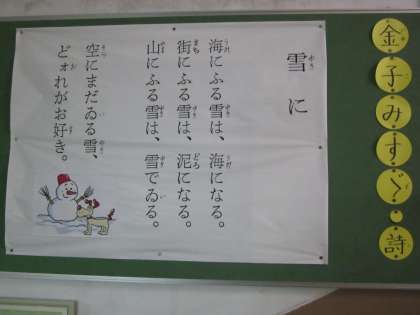 金子みすゞ 詩
雪に
海にふる雪は、海になる。
街にふる雪は、泥になる。
山にふる雪は、雪でゐる。
空にまだゐる雪、
どォれがお好き。